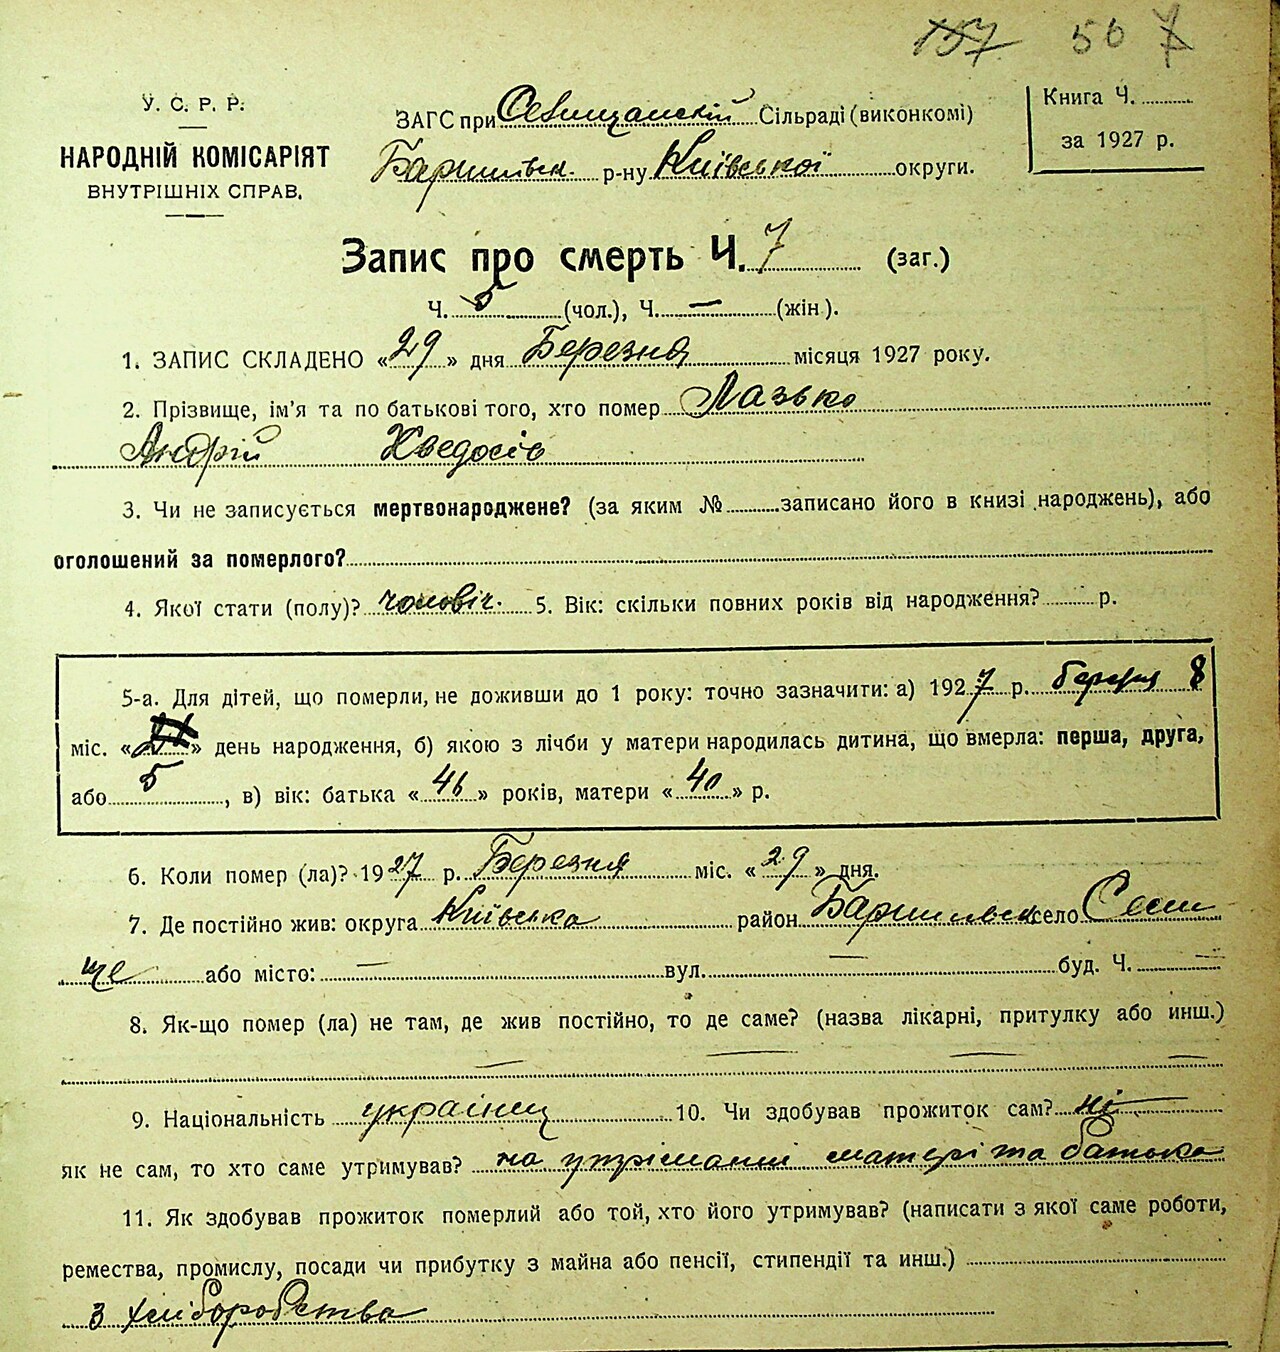 157 50 7
У. С. Р. Р.
НАРОДНІЙ КОМІСАРІЯТ
ВНУТРІШНІХ СПРАВ.
ЗАГС при Селищанскій Сільраді (виконкомі)
Баришівськ. р-ну Київської округи.
Книга Ч.
за 1927 р.
Запис про смерть Ч. 7 (заг.)
Ч. 5 (чол.), Ч. — (жін).
1. ЗАПИС СКЛАДЕНО «29» дня Березня місяця 1927 року.
2. Прізвище, ім'я та по батькові того, хто помер Лазько
Андрій Хведосів
3. Чи не записується мертвонароджене? (за яким № записано його в книзі народжень), або
оголошений за померлого?
4. Якої стати (полу)? чоловіч. 5. Вік: скільки повних років від народження? р.
5-а. Для дітей, що померли, не доживши до 1 року: точно зазначити: а) 1927 р. березня 8
міс. « » день народження, б) якою з лічби у матери народилась дитина, що вмерла: перша, друга,
або 5, в) вік: батька «46» років, матери «40» р.
6. Коли помер (ла)? 1927 р. Березня міс. «29» дня.
7. Де постійно жив: округа Київська район Баришівськ село Сели
ще або місто: — вул. — буд. Ч. —
8. Як-що помер (ла) не там, де жив постійно, то де саме? (назва лікарні, притулку або инш.)
— — — —
9. Національність українец 10. Чи здобував прожиток сам? ні
як не сам, то хто саме утримував? на утріманні матері та батька
11. Як здобував прожиток померлий або той, хто його утримував? (написати з якої саме роботи,
ремества, промислу, посади чи прибутку з майна або пенсії, стипендії та инш.)
З хліборобства